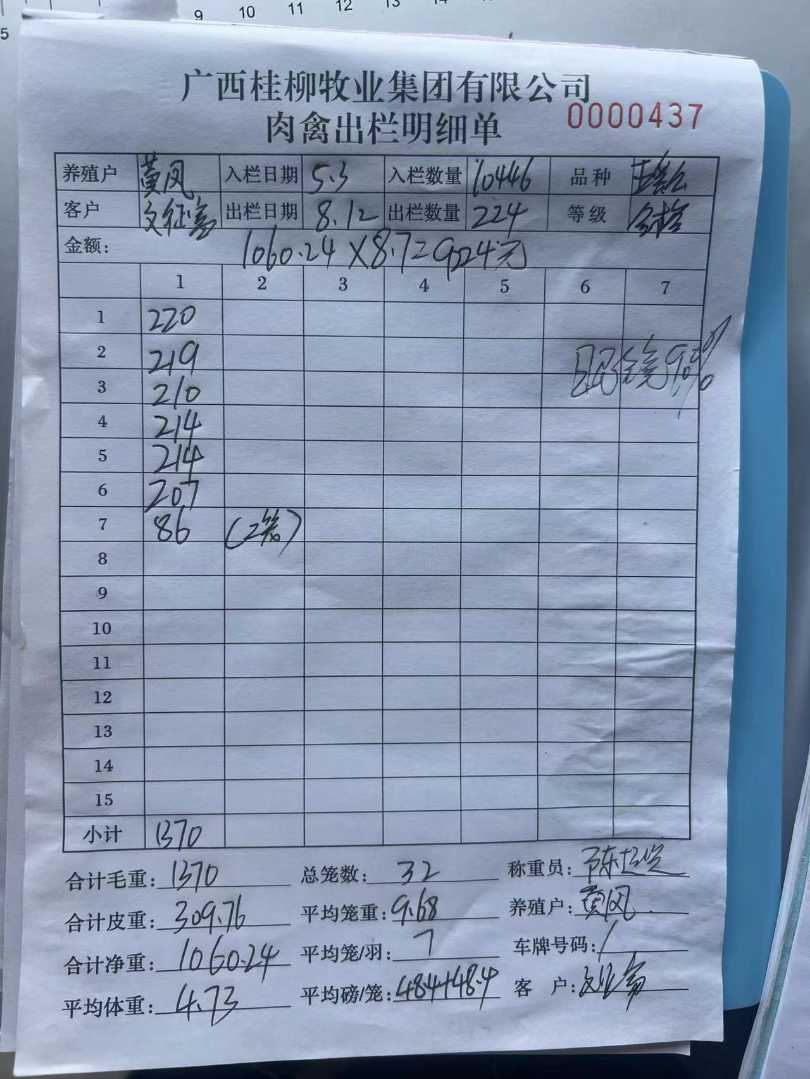 5 9 10 11 12 13 14
广西桂柳牧业集团有限公司
肉禽出栏明细单
0000437
养殖户 黄凤 入栏日期 5.3 入栏数量 10446 品种
客户 出栏日期 8.12 出栏数量 224 等级 合格
金额: 1060.24×8.7=9224元
1 2 3 4 5 6 7
1 220
2 219
3 210
4 214
5 214
6 207
7 86 (2笼)
8
9
10
11
12
13
14
15
小计 1370
合计毛重: 1370 总笼数: 32 称重员:
合计皮重: 309.76 平均笼重: 9.68 养殖户: 黄凤
合计净重: 1060.24 平均笼/羽: 7 车牌号码: /
平均体重: 4.73 平均磅/笼: 48.4+48.4 客 户: